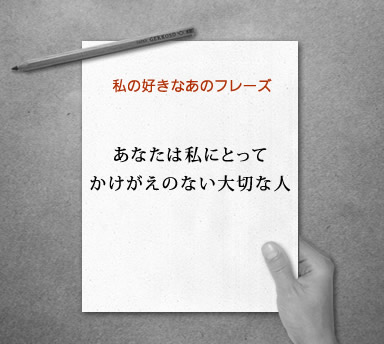 私の好きなあのフレーズ
あなたは私にとって
かけがえのない大切な人